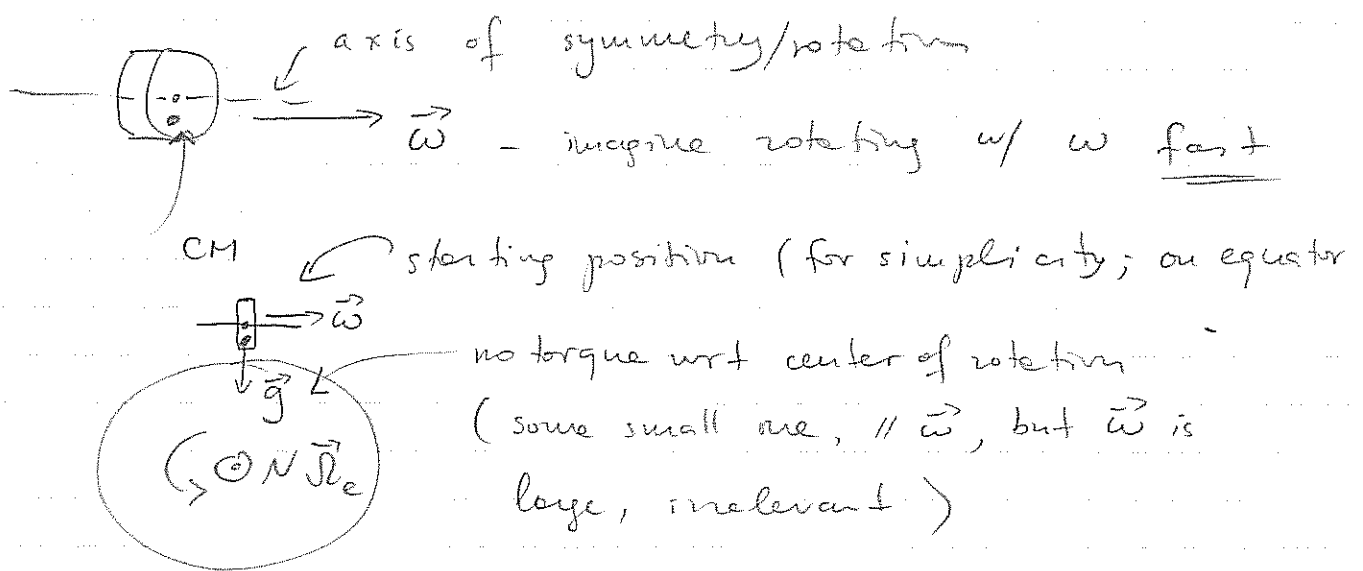 axis of symmetry/rotation
$\vec{\omega}$ - imagine rotating w/ ω fast
CM
starting position (for simplicity; on equator
$\vec{\omega}$
no torque wrt center of rotation
$\vec{g}$
(some small one, // $\vec{\omega}$, but $\vec{\omega}$ is
⊙ N $\vec{\Omega}_e$
large, irrelevant)